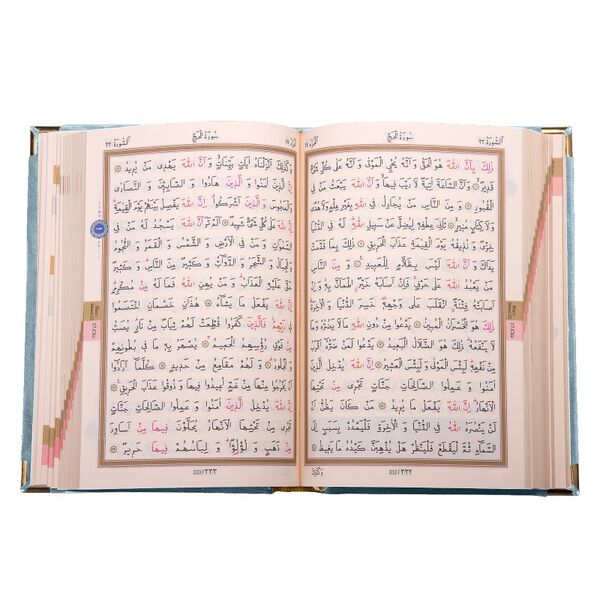 اَلسُّورَةُ ٢٢ سُورَةُ الْحَجِّ اَلْجُزْءُ ١٧
ذٰلِكَ بِاَنَّ اللّٰهَ هُوَ الْحَقُّ وَ اَنَّهُ يُحْيِ الْمَوْتٰى وَ اَنَّهُ عَلٰى كُلِّ شَيْءٍ
قَدِيرٌ ۝ وَ اَنَّ السَّاعَةَ اٰتِيَةٌ لَا رَيْبَ فِيهَا وَ اَنَّ اللّٰهَ يَبْعَثُ مَنْ فِي
الْقُبُورِ ۝ وَ مِنَ النَّاسِ مَنْ يُجَادِلُ فِي اللّٰهِ بِغَيْرِ عِلْمٍ وَ لَا هُدًى
وَ لَا كِتَابٍ مُنِيرٍ ۝ ثَانِيَ عِطْفِهِ لِيُضِلَّ عَنْ سَبِيلِ اللّٰهِ لَهُ فِي الدُّنْيَا
خِزْيٌ وَ نُذِيقُهُ يَوْمَ الْقِيٰمَةِ عَذَابَ الْحَرِيقِ ۝ ذٰلِكَ بِمَا قَدَّمَتْ
يَدَاكَ وَ اَنَّ اللّٰهَ لَيْسَ بِظَلَّامٍ لِلْعَبِيدِ ۝ وَ مِنَ النَّاسِ
مَنْ يَعْبُدُ اللّٰهَ عَلٰى حَرْفٍ فَاِنْ اَصَابَهُ خَيْرٌ اطْمَاَنَّ بِهِ وَ اِنْ
اَصَابَتْهُ فِتْنَةٌ انْقَلَبَ عَلٰى وَجْهِهِ خَسِرَ الدُّنْيَا وَ الْاٰخِرَةَ
ذٰلِكَ هُوَ الْخُسْرَانُ الْمُبِينُ ۝ يَدْعُوا مِنْ دُونِ اللّٰهِ مَا لَا يَضُرُّهُ وَ مَا
لَا يَنْفَعُهُ ذٰلِكَ هُوَ الضَّلَالُ الْبَعِيدُ ۝ يَدْعُوا لَمَنْ ضَرُّهُ اَقْرَبُ
مِنْ نَفْعِهِ لَبِئْسَ الْمَوْلٰى وَ لَبِئْسَ الْعَشِيرُ ۝ اِنَّ اللّٰهَ يُدْخِلُ الَّذِينَ
اٰمَنُوا وَ عَمِلُوا الصَّالِحَاتِ جَنَّاتٍ تَجْرِي مِنْ تَحْتِهَا
الْاَنْهَارُ اِنَّ اللّٰهَ يَفْعَلُ مَا يُرِيدُ ۝ مَنْ كَانَ يَظُنُّ اَنْ لَنْ
يَنْصُرَهُ اللّٰهُ فِي الدُّنْيَا وَ الْاٰخِرَةِ فَلْيَمْدُدْ بِسَبَبٍ اِلَى
السَّمَاءِ ثُمَّ لْيَقْطَعْ فَلْيَنْظُرْ هَلْ يُذْهِبَنَّ كَيْدُهُ مَا يَغِيظُ ۝
332/٣٣٢ وَكَذٰلِكَ
17.Cüz
اَلسُّورَةُ ٢٢ سُورَةُ الْحَجِّ اَلْجُزْءُ ١٧
وَ كَذٰلِكَ اَنْزَلْنَاهُ اٰيَاتٍ بَيِّنَاتٍ وَ اَنَّ اللّٰهَ يَهْدِي مَنْ يُرِيدُ ۝
اِنَّ الَّذِينَ اٰمَنُوا وَ الَّذِينَ هَادُوا وَ الصَّابِـِٔينَ وَ النَّصَارٰى
وَ الْمَجُوسَ وَ الَّذِينَ اَشْرَكُوا اِنَّ اللّٰهَ يَفْصِلُ بَيْنَهُمْ يَوْمَ الْقِيٰمَةِ
اِنَّ اللّٰهَ عَلٰى كُلِّ شَيْءٍ شَهِيدٌ ۝ اَلَمْ تَرَ اَنَّ اللّٰهَ يَسْجُدُ لَهُ مَنْ فِي
السَّمٰوَاتِ وَ مَنْ فِي الْاَرْضِ وَ الشَّمْسُ وَ الْقَمَرُ وَ النُّجُومُ
وَ الْجِبَالُ وَ الشَّجَرُ وَ الدَّوَابُّ وَ كَثِيرٌ مِنَ النَّاسِ وَ كَثِيرٌ
حَقَّ عَلَيْهِ الْعَذَابُ وَ مَنْ يُهِنِ اللّٰهُ فَمَا لَهُ مِنْ مُكْرِمٍ
اِنَّ اللّٰهَ يَفْعَلُ مَا يَشَاءُ ۝ هٰذَانِ خَصْمَانِ اخْتَصَمُوا
فِي رَبِّهِمْ فَالَّذِينَ كَفَرُوا قُطِّعَتْ لَهُمْ ثِيَابٌ مِنْ نَارٍ يُصَبُّ
مِنْ فَوْقِ رُؤُسِهِمُ الْحَمِيمُ ۝ يُصْهَرُ بِهِ مَا فِي بُطُونِهِمْ
وَ الْجُلُودُ ۝ وَ لَهُمْ مَقَامِعُ مِنْ حَدِيدٍ ۝ كُلَّمَا اَرَادُوا
اَنْ يَخْرُجُوا مِنْهَا مِنْ غَمٍّ اُعِيدُوا فِيهَا وَ ذُوقُوا عَذَابَ الْحَرِيقِ ۝
اِنَّ اللّٰهَ يُدْخِلُ الَّذِينَ اٰمَنُوا وَ عَمِلُوا الصَّالِحَاتِ جَنَّاتٍ
تَجْرِي مِنْ تَحْتِهَا الْاَنْهَارُ يُحَلَّوْنَ فِيهَا مِنْ اَسَاوِرَ
مِنْ ذَهَبٍ وَ لُؤْلُؤًا وَ لِبَاسُهُمْ فِيهَا حَرِيرٌ ۝
333/٣٣٣
17.Cüz